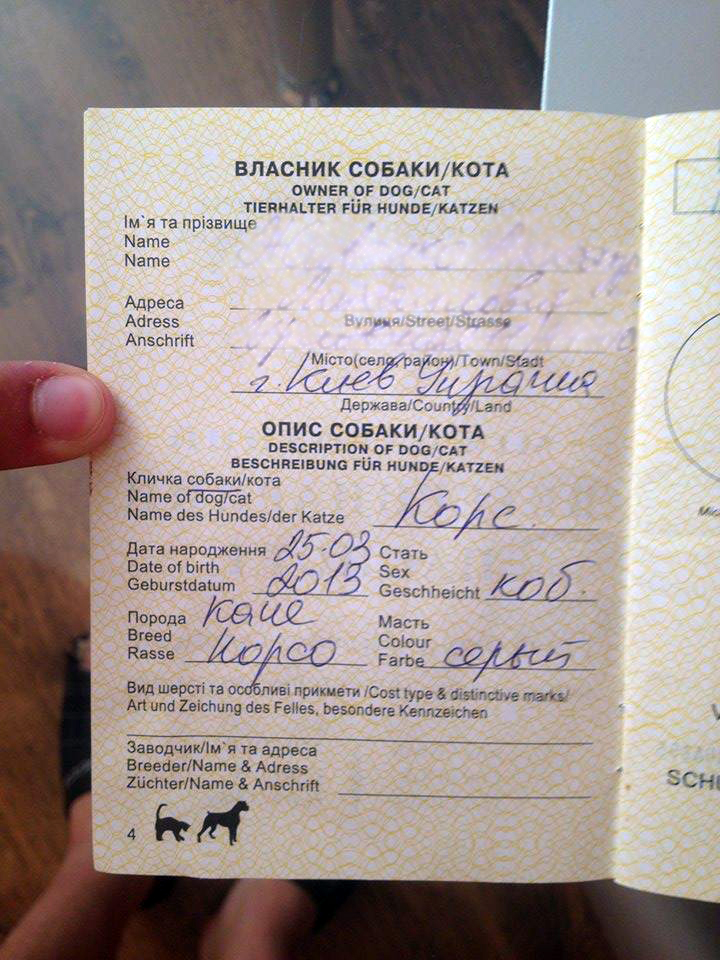 ВЛАСНИК СОБАКИ/КОТА
OWNER OF DOG/CAT
TIERHALTER FÜR HUNDE/KATZEN
Ім`я та прізвище
Name
Name
Адреса
Adress
Вулиця/Street/Strasse
Anschrift
Місто(село, район)/Town/Stadt
г. Киев Украина
Держава/Country/Land
ОПИС СОБАКИ/КОТА
DESCRIPTION OF DOG/CAT
BESCHREIBUNG FÜR HUNDE/KATZEN
Кличка собаки/кота
Name of dog/cat
Name des Hundes/der Katze Корс.
Дата народження 25.03 Стать
Date of birth Sex
Geburstdatum 2013 Geschheicht коб.
Порода Кане Масть
Breed Colour
Rasse Корсо Farbe серый
Вид шерсті та особливі прикмети /Cost type & distinctive marks/
Art und Zeichung des Felles, besondere Kennzeichen
Заводчик/Ім`я та адреса
Breeder/Name & Adress
Züchter/Name & Anschrift
4